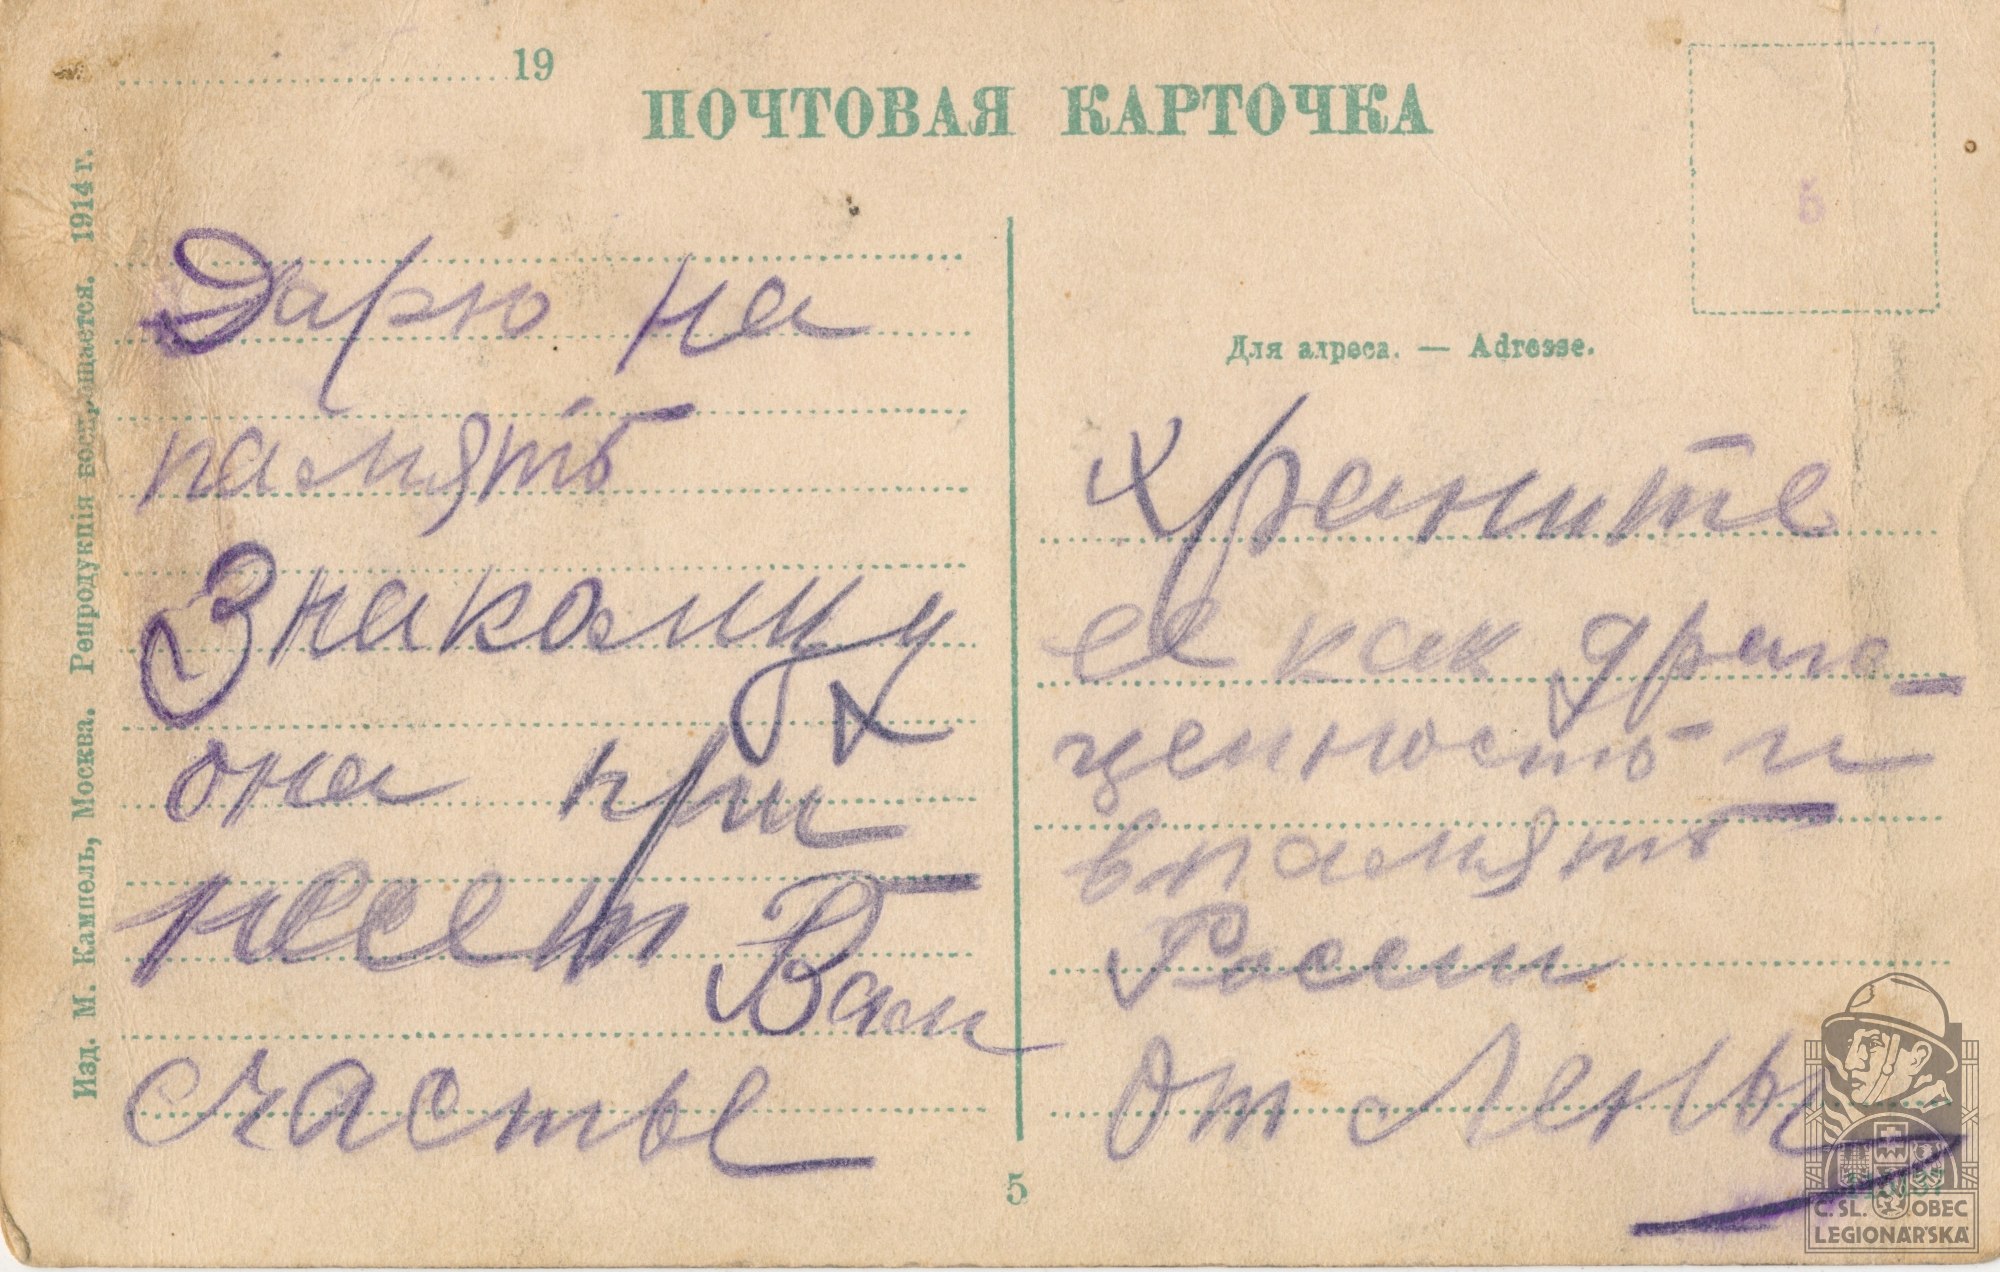 19
ПОЧТОВАЯ КАРТОЧКА
Изд. М. Кампель, Москва. Репродукція воспрещается. 1914 г.
Дарю на
память
Знакомцу
она при
несет Вам
счастье
5
Для адреса. — Adresse.
Храните
ее как драго
ценность и
в память
Росеи
от Лены
C. SL. OBEC
LEGIONÁŘSKÁ